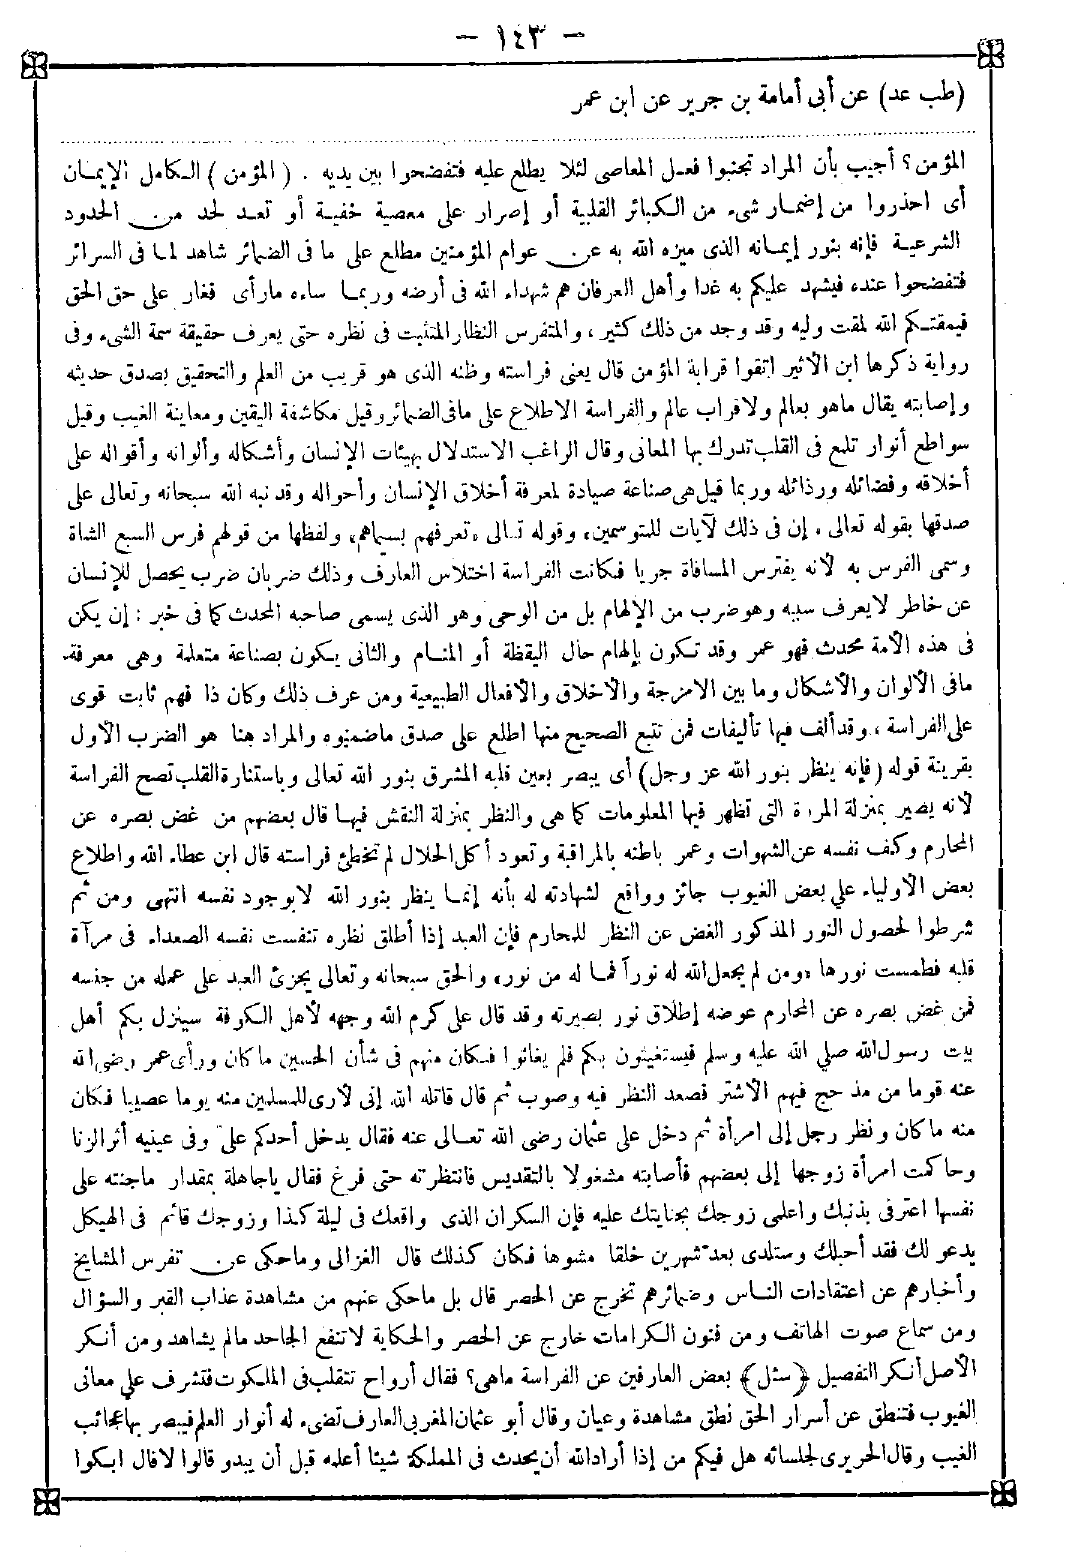 - ١٤٣ -
(طب عد) عن أبى أمامة بن جرير عن ابن عمر
المؤمن؟ أجيب بأن المراد تجنبوا فعل المعاصى لئلا يطلع عليه فتفضحوا بين يديه . (المؤمن) الكامل الإيمان
أى احذروا من إضمار شىء من الكبائر القلبية أو إصرار على معصية خفية أو تعد لحد من الحدود
الشرعية فإنه بنور إيمانه الذى ميزه الله به عن عوام المؤمنين مطلع على ما فى الضمائر شاهد لما فى السرائر
فتفضحوا عنده فيشهد عليكم به غدا وأهل العرفان هم شهداء الله فى أرضه وربما ساءه مارأى فغار على حق الحق
فيمقتكم الله لمقت وليه وقد وجد من ذلك كثير، والمتفرس النظار المتثبت فى نظره حتى يعرف حقيقة سمة الشىء وفى
رواية ذكرها ابن الأثير اتقوا قرابة المؤمن قال يعنى فراسته وظنه الذى هو قريب من العلم والتحقيق بصدق حديثه
وإصابته يقال ماهو بعالم ولاقراب عالم والفراسة الاطلاع على مافى الضمائر وقيل مكاشفة اليقين ومعاينة الغيب وقيل
سواطع أنوار تلمع فى القلب تدرك بها المعانى وقال الراغب الاستدلال بهيئات الإنسان وأشكاله وألوانه وأقواله على
أخلاقه وفضائله ورذائله وربما قيل هى صناعة صيادة لمعرفة أخلاق الإنسان وأحواله وقد نبه الله سبحانه وتعالى على
صدقها بقوله تعالى «إن فى ذلك لآيات للمتوسمين» وقوله تعالى «تعرفهم بسيماهم» ولفظها من قولهم فرس السبع الشاة
وسمى الفرس به لأنه يفترس المسافاة جريا فكانت الفراسة اختلاس العارف وذلك ضربان ضرب يحصل للإنسان
عن خاطر لايعرف سببه وهو ضرب من الإلهام بل من الوحى وهو الذى يسمى صاحبه المحدث كما فى خبر : إن يكن
فى هذه الأمة محدث فهو عمر وقد تكون بإلهام حال اليقظة أو المنام والثانى يكون بصناعة متعلمة وهى معرفة
مافى الألوان والأشكال وما بين الامزجة والاخلاق والأفعال الطبيعية ومن عرف ذلك وكان ذا فهم ثابت قوى
على الفراسة ، وقد ألف فيها تأليفات فمن تتبع الصحيح منها اطلع على صدق ماضمنوه والمراد هنا هو الضرب الأول
بقرينة قوله (فإنه ينظر بنور الله عز وجل) أى يبصر بعين قلبه المشرق بنور الله تعالى وباستنارة القلب تصح الفراسة
لأنه يصير بمنزلة المرآة التى تظهر فيها المعلومات كما هى والنظر بمنزلة النقش فيها قال بعضهم من غض بصره عن
المحارم وكف نفسه عن الشهوات وعمر باطنه بالمراقبة وتعود أكل الحلال لم تخطئ فراسته قال ابن عطاء الله واطلاع
بعض الأولياء علي بعض الغيوب جائز وواقع لشهادته له بأنه إنما ينظر بنور الله لابوجود نفسه انتهى ومن ثم
شرطوا لحصول النور المذكور الغض عن النظر للمحارم فإن العبد إذا أطلق نظره تنفست نفسه الصعداء فى مرآة
قلبه فطمست نورها «ومن لم يجعل الله له نوراً فما له من نور» والحق سبحانه وتعالى يجزئ العبد على عمله من جنسه
فمن غض بصره عن المحارم عوضه إطلاق نور بصيرته وقد قال على كرم الله وجهه لأهل الكوفة سينزل بكم أهل
بيت رسول الله صلي الله عليه وسلم فيستغيثون بكم فلم يغاثوا فكان منهم فى شأن الحسين ماكان ورأى عمر رضى الله
عنه قوما من مذحج فيهم الأشتر فصعد النظر فيه وصوب ثم قال قاتله الله إنى لأرى للمسلمين منه يوما عصيبا فكان
منه ماكان ونظر رجل إلى امرأة ثم دخل على عثمان رضى الله تعالى عنه فقال يدخل أحدكم علىّ وفى عينيه أثر الزنا
وحاكمت امرأة زوجها إلى بعضهم فأصابته مشغولا بالتقديس فانتظرته حتى فرغ فقال ياجاهلة بمقدار ماجنته على
نفسها اعترفى بذنبك واعلمى زوجك بجنايتك عليه فإن السكران الذى واقعك فى ليلة كذا وزوجك قائم فى الهيكل
يدعو لك فقد أحبلك وستلدى بعد شهرين خلقا مشوها فكان كذلك قال الغزالى وماحكى عن تفرس المشايخ
وأخبارهم عن اعتقادات الناس وضمائرهم تخرج عن الحصر قال بل ماحكى عنهم من مشاهدة عذاب القبر والسؤال
ومن سماع صوت الهاتف ومن فنون الكرامات خارج عن الحصر والحكاية لاتنفع الجاحد مالم يشاهد ومن أنكر
الأصل أنكر التفصيل (سئل) بعض العارفين عن الفراسة ماهى؟ فقال أرواح تتقلب فى الملكوت فتشرف علي معانى
الغيوب فتنطق عن أسرار الحق نطق مشاهدة وعيان وقال أبو عثمان المغربى العارف تضىء له أنوار العلم فيبصر بها عجائب
الغيب وقال الحريرى لجلسائه هل فيكم من إذا أراد الله أن يحدث فى المملكة شيئا أعلمه قبل أن يبدو قالوا لا قال ابكوا